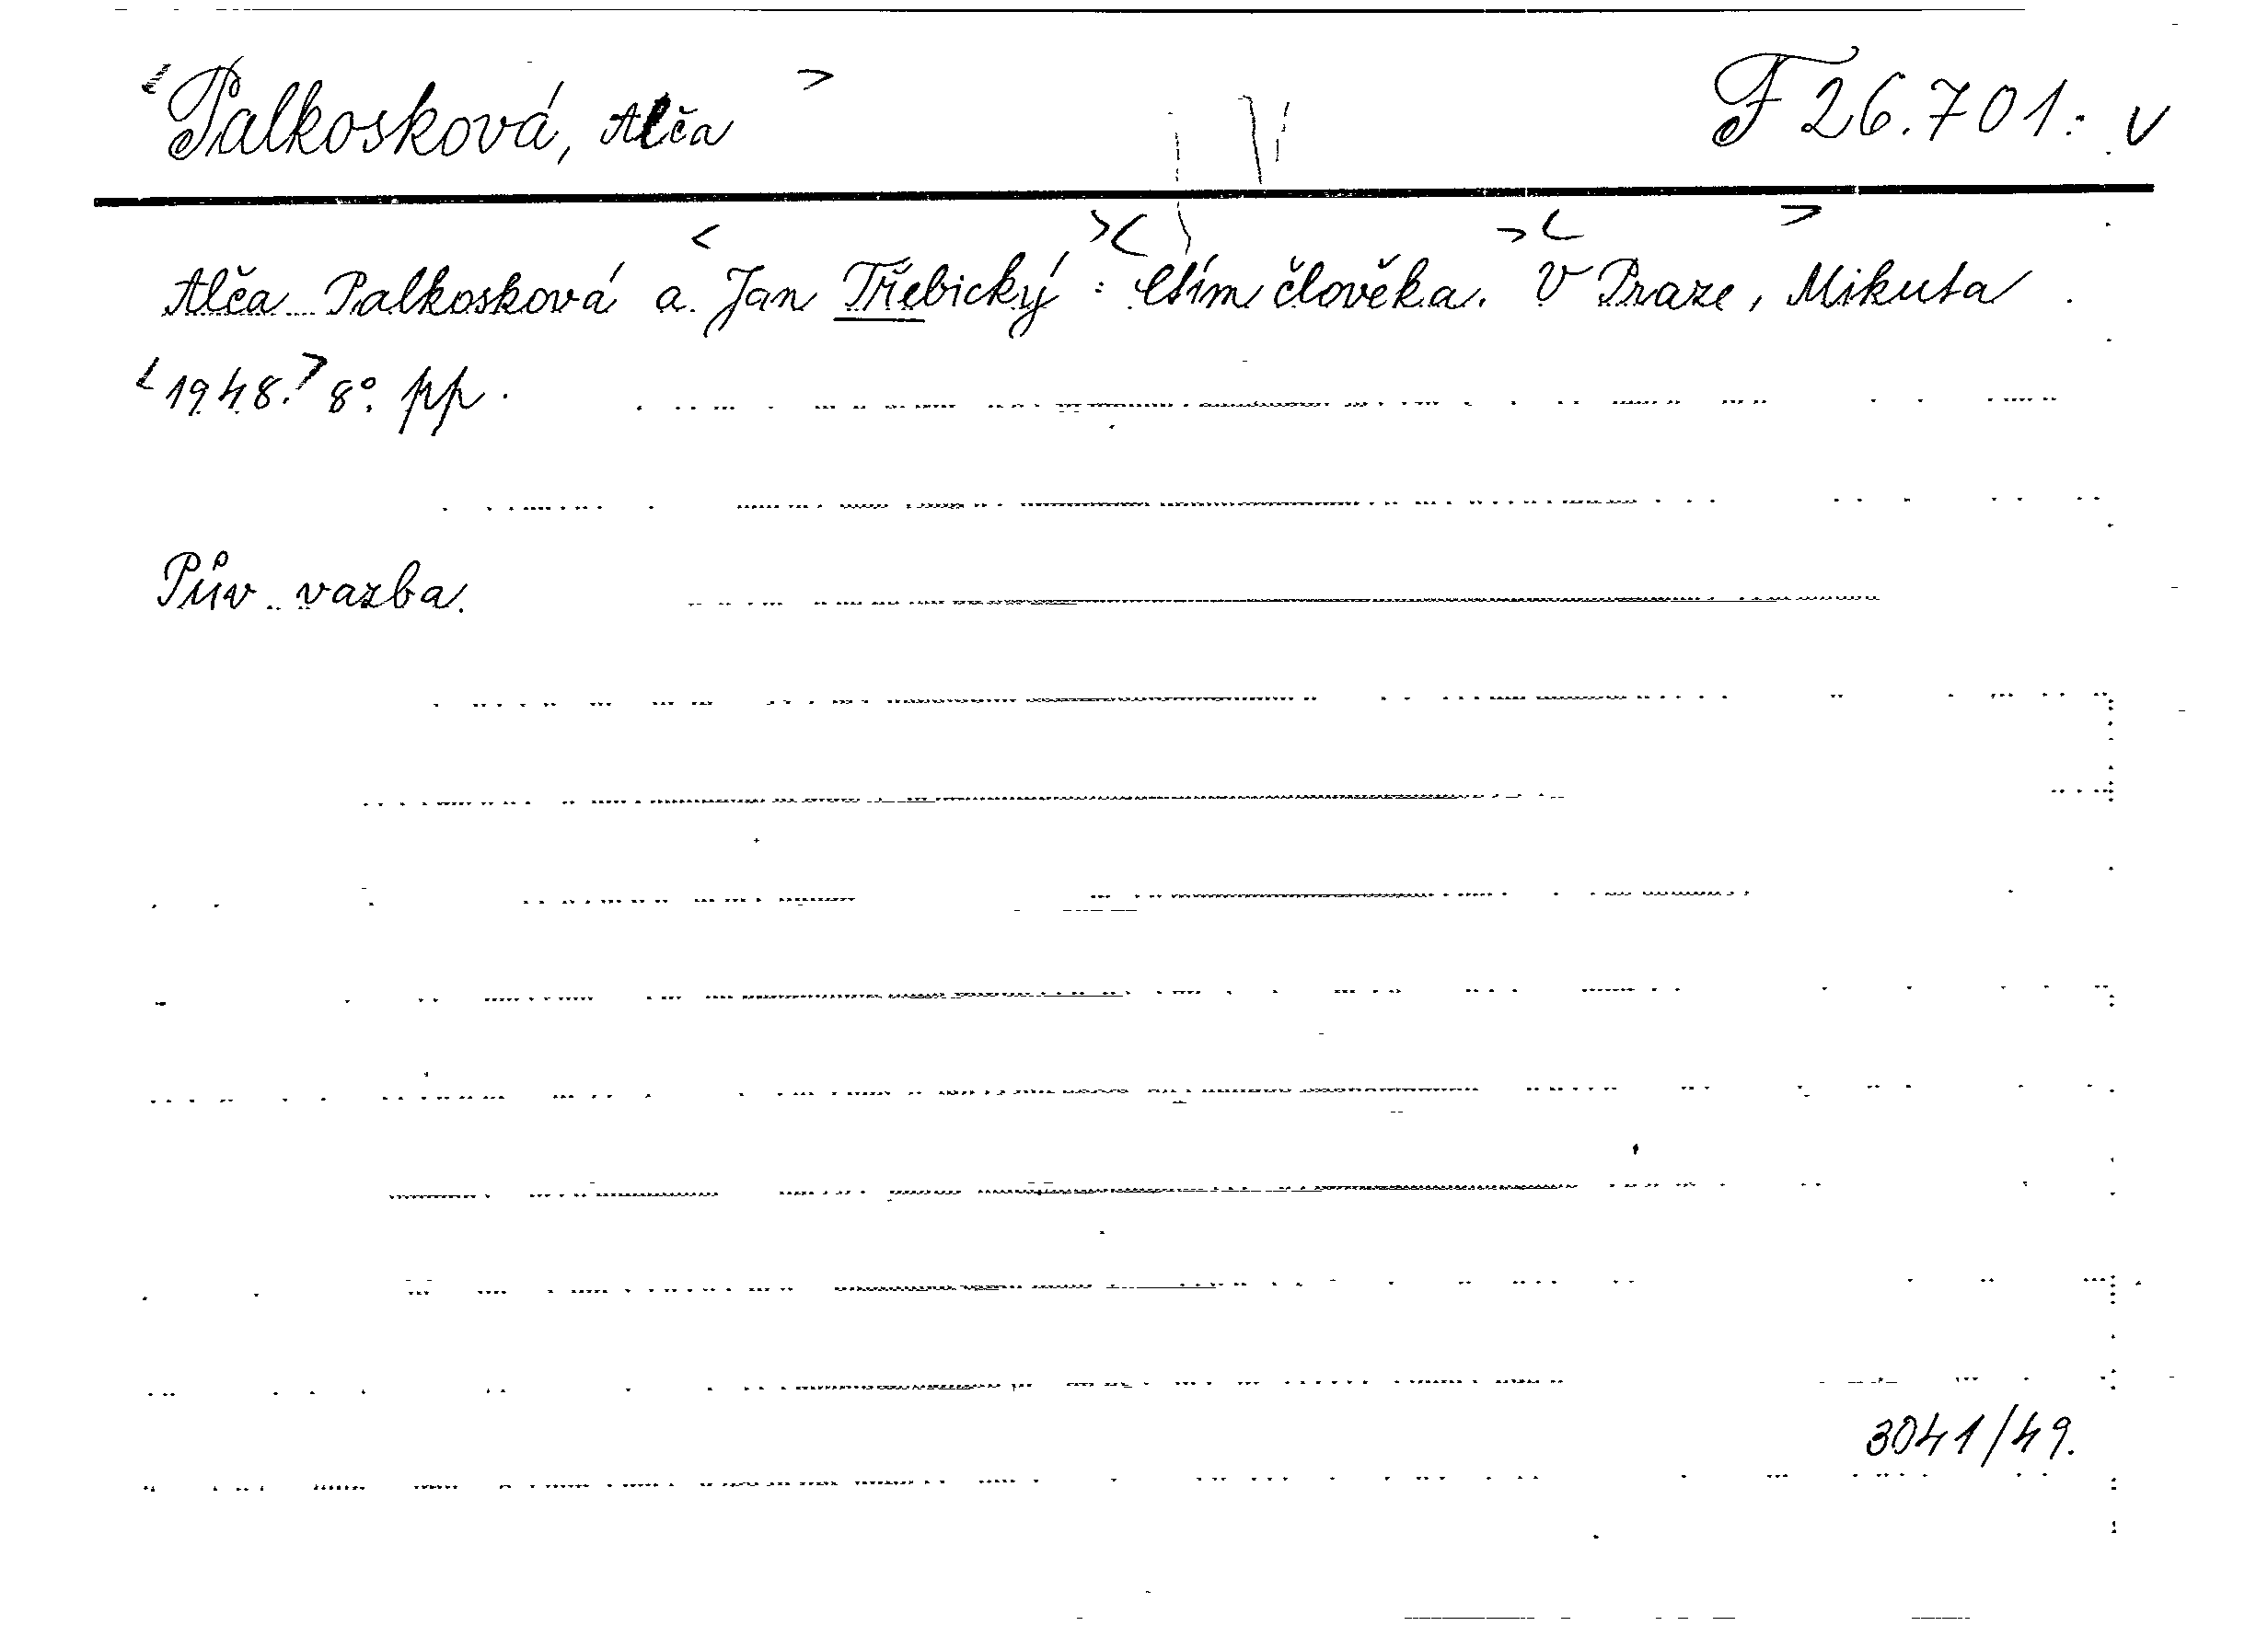 Palkosková, Alča F 26.701. v
Alča Palkosková a Jan Třebický : Ctím člověka. V Praze, Mikuta
1948. 8° pp.
Pův. vazba.
3041/49.